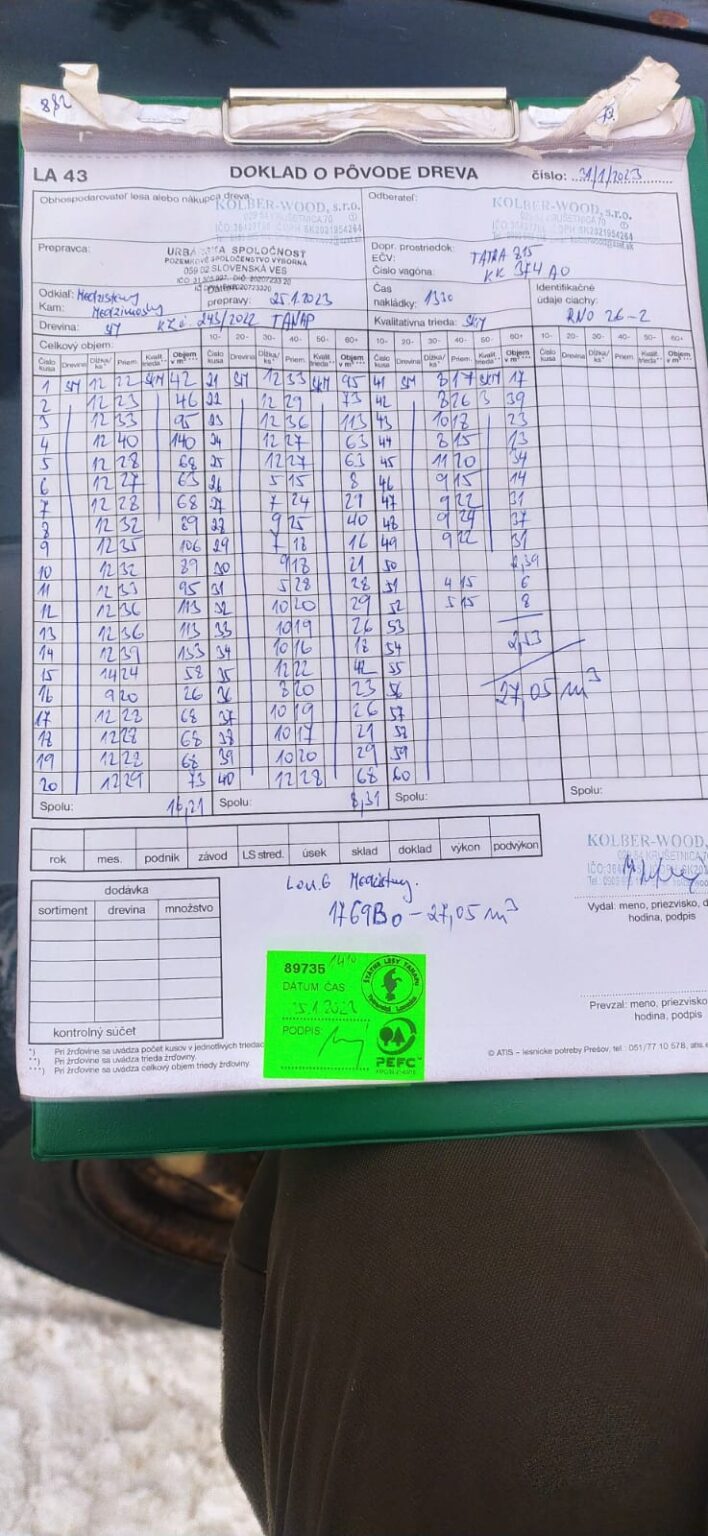 882
LA 43 DOKLAD O PÔVODE DREVA číslo: 31/1/2023
Obhospodarovateľ lesa alebo nákupca dreva: KOLBER-WOOD, s.r.o.
Odberateľ: KOLBER-WOOD, s.r.o.
Prepravca:
SPOLOČNOSŤ
POZEMKOVÉ SPOLOČENSTVO VÝBORNÁ
059 02 SLOVENSKÁ VES
Dopr. prostriedok: TATRA 815
EČV:
Číslo vagóna: KK 374 AO
Odkiaľ:
Kam:
Dátum prepravy: 25.1.2023
Čas nakládky: 1330
Identifikačné údaje ciachy: RNO 26-2
Drevina: SM 243/2022 TANAP
Kvalitatívna trieda:
Celkový objem: 10- 20- 30- 40- 50- 60+ 10- 20- 30- 40- 50- 60+ 10- 20- 30- 40- 50- 60+ 10- 20- 30- 40- 50- 60+
Číslo kusa Drevina Dĺžka/ks Priem. Kvalit. trieda Objem v m³ Číslo kusa Drevina Dĺžka/ks Priem. Kvalit. trieda Objem v m³ Číslo kusa Drevina Dĺžka/ks Priem. Kvalit. trieda Objem v m³ Číslo kusa Drevina Dĺžka/ks Priem. Kvalit. trieda Objem v m³
1 SM 12 22 42 21 SM 12 33 95 41 SM 8 17 17
2 12 23 46 22 12 29 73 42 8 26 3 39
3 12 33 95 23 12 36 113 43 10 18 23
4 12 40 140 24 12 27 63 44 8 15 13
5 12 28 68 25 12 27 63 45 11 20 34
6 12 27 63 26 5 15 8 46 9 15 14
7 12 28 68 27 7 24 29 47 9 22 31
8 12 32 89 28 9 25 40 48 9 24 37
9 12 35 106 29 7 18 16 49 9 22 31
10 12 32 89 30 9 18 21 50 2,39
11 12 33 95 31 5 28 28 51 4 15 6
12 12 36 113 32 10 20 29 52 5 15 8
13 12 36 113 33 10 19 26 53
14 12 39 133 34 10 16 18 54 2,53
15 14 24 58 35 12 22 42 55
16 9 20 26 36 8 20 23 56 27,05 m³
17 12 28 68 37 10 19 26 57
18 12 28 68 38 10 17 21 58
19 12 28 68 39 10 20 29 59
20 12 29 73 40 12 28 68 60
Spolu: 16,21 Spolu: 8,31 Spolu: Spolu:
rok mes. podnik závod LS stred. úsek sklad doklad výkon podvýkon
KOLBER-WOOD,
Vydal: meno, priezvisko, d
hodina, podpis
dodávka
sortiment drevina množstvo
kontrolný súčet
1769B0 - 27,05 m³
89735 1410
DÁTUM ČAS
PODPIS
ŠTÁTNE LESY TANAPU
PEFC
Prevzal: meno, priezvisko
hodina, podpis
*) Pri žrďovine sa uvádza počet kusov v jednotlivých triedac
**) Pri žrďovine sa uvádza trieda žrďoviny.
***) Pri žrďovine sa uvádza celkový objem triedy žrďoviny
© ATIS – lesnícke potreby Prešov, tel.: 051/77 10 578, atis.